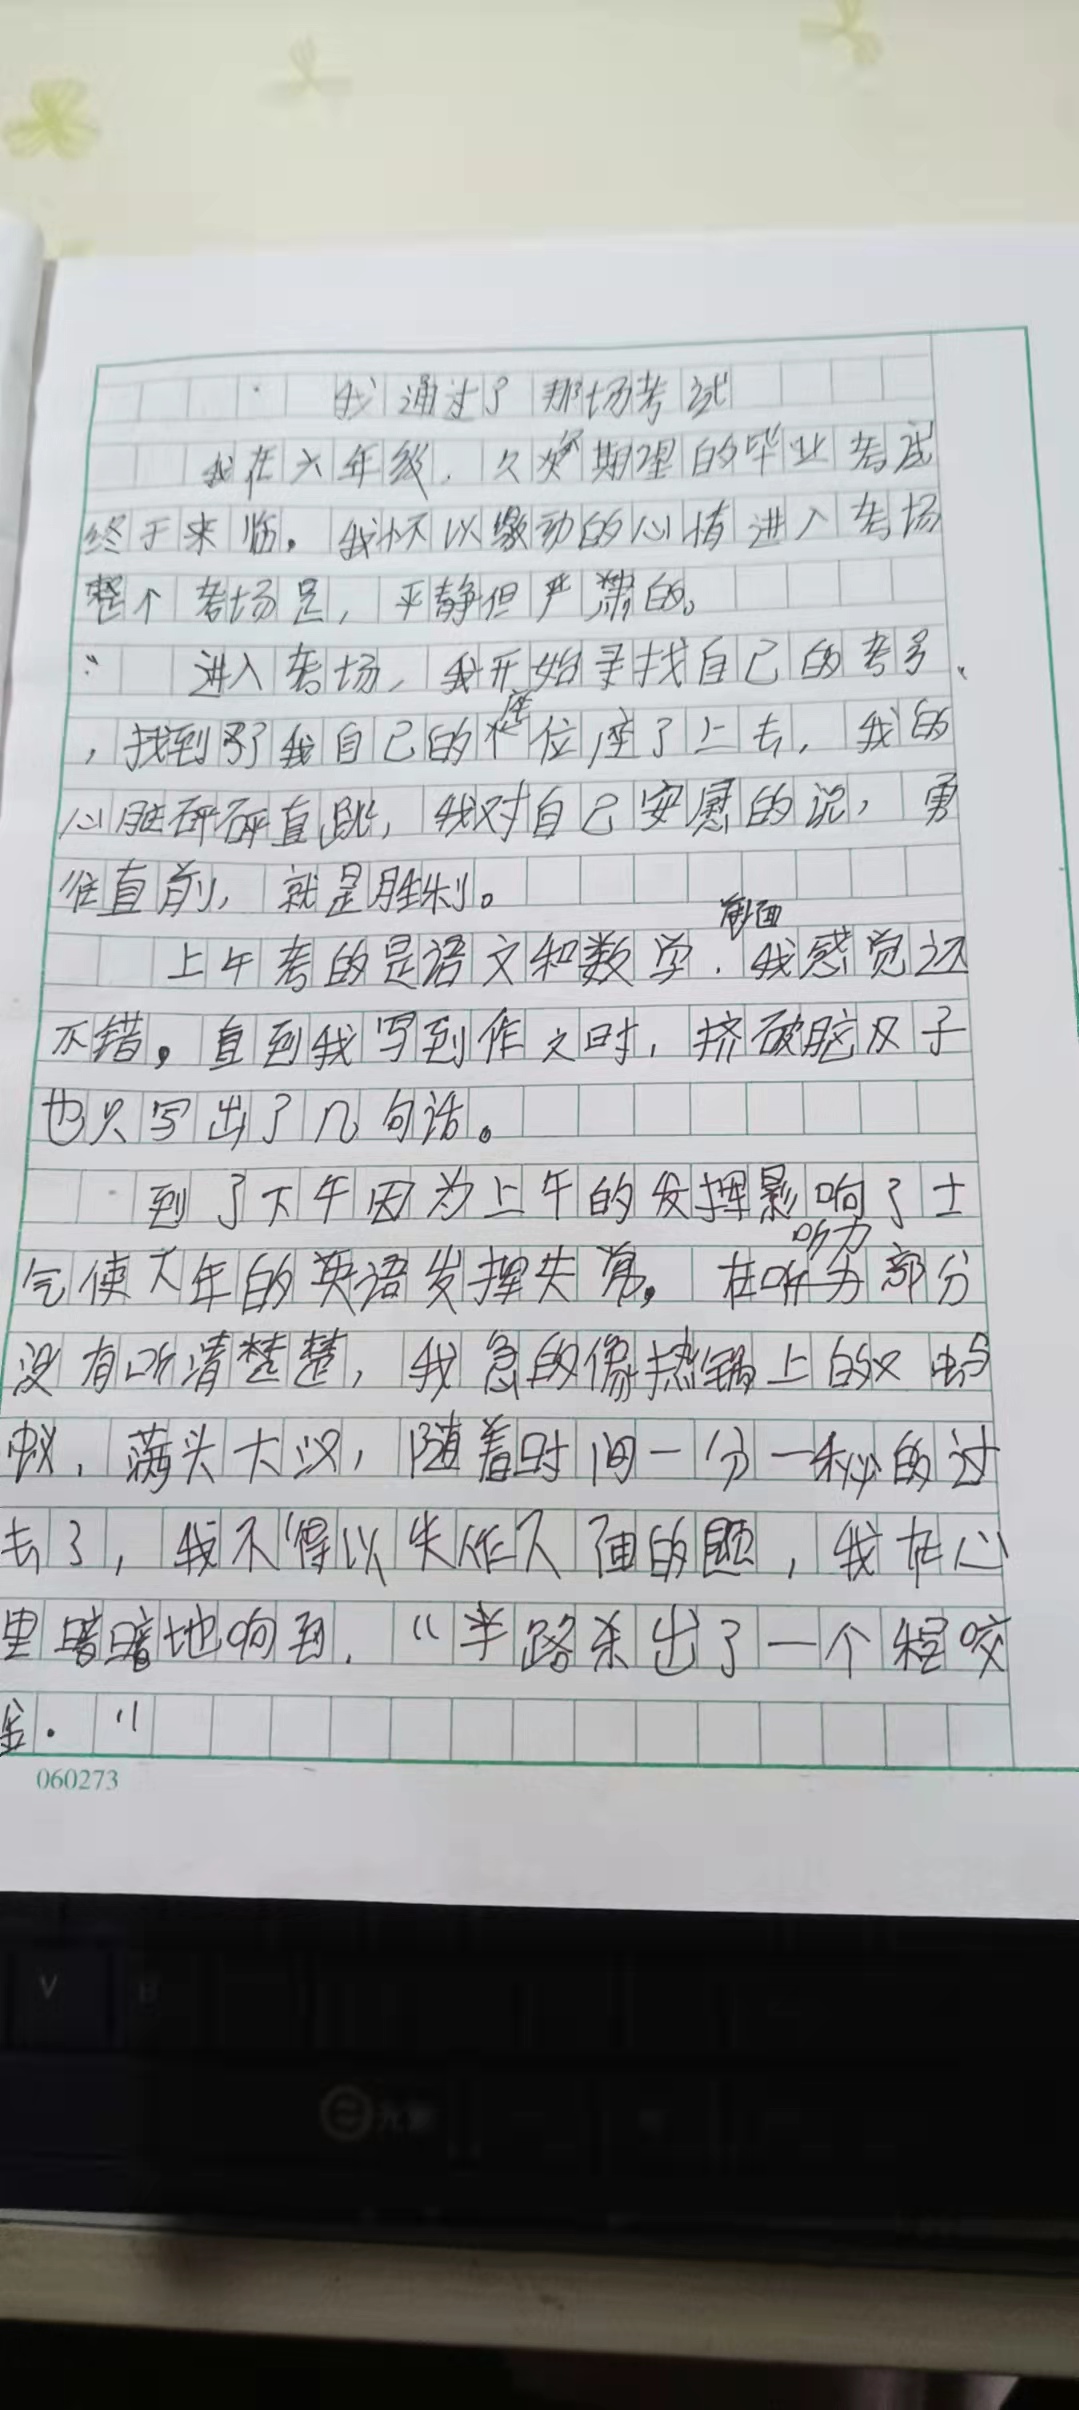 我通过了那场考试
我在六年级，久期望的毕业考试
终于来临。我怀以激动的心情进入考场
整个考场是，平静但严肃的。
进入考场，我开始寻找自己的考号
，找到了我自己的座位座了上去，我的
心脏砰砰直跳，我对自己安慰的说，勇
往直前，就是胜利。
上午考的是语文和数学．前面我感觉还
不错。直到我写到作文时，挤破脑及子
也只写出了几句话。
到了下午因为上午的发挥影响了士
气使下午的英语发挥失常。在听力部分
没有听清楚楚，我急的像热锅上的蚂
蚁，满头大汉，随着时间一分一秘的过
去了，我不得以先作下面的题，我在心
里暗暗地响到．“半路杀出了一个程咬
金．”
060273
V
B